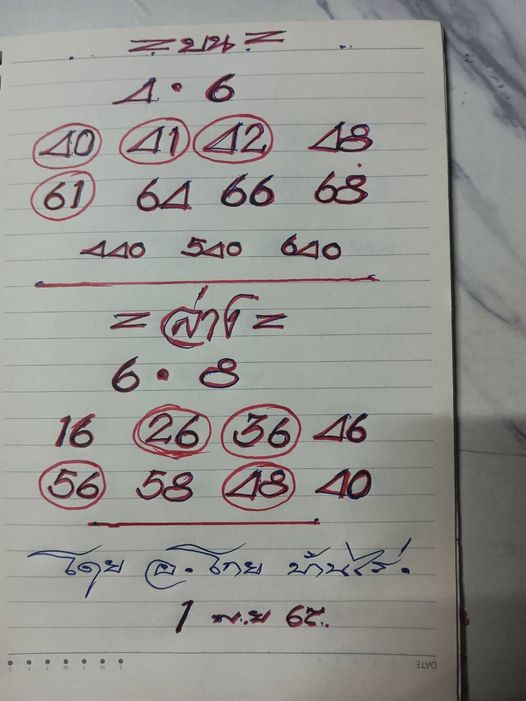 = บน =
4 • 6
40 41 42 48
61 64 66 68
440 540 640
= ล่าง =
6 • 8
16 26 36 46
56 58 48 40
โดย อ. โกย บ้านไร่.
1 พ.ย 65.
DATE
S M T W T F S